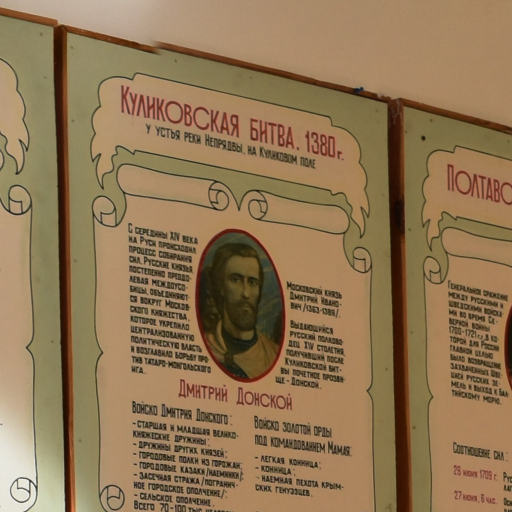 КУЛИКОВСКАЯ БИТВА. 1380 г.
У УСТЬЯ РЕКИ НЕПРЯДВЫ, НА КУЛИКОВОМ ПОЛЕ
С СЕРЕДИНЫ XIV ВЕКА
НА РУСИ ПРОИСХОДИЛ
ПРОЦЕСС СОБИРАНИЯ
СИЛ. РУССКИЕ КНЯЗЬЯ
ПОСТЕПЕННО ПРЕОДО-
ЛЕВАЯ МЕЖДОУСО-
БИЦЫ, ОБЪЕДИНЯЮТ-
СЯ ВОКРУГ МОСКОВ-
СКОГО КНЯЖЕСТВА.
КОТОРОЕ УКРЕПИЛО
ЦЕНТРАЛИЗОВАННУЮ
ПОЛИТИЧЕСКУЮ ВЛАСТЬ
И ВОЗГЛАВИЛО БОРЬБУ ПРО
ТИВ ТАТАРО-МОНГОЛЬСКОГО
ИГА.
МОСКОВСКИЙ КНЯЗЬ
ДМИТРИЙ ИВАНО-
ВИЧ /1363-1389/.
ВЫДАЮЩИЙСЯ
РУССКИЙ ПОЛКОВО-
ДЕЦ XIV СТОЛЕТИЯ,
ПОЛУЧИВШИЙ ПОСЛЕ
КУЛИКОВСКОЙ БИТ-
ВЫ ПОЧЕТНОЕ ПРОЗВИ-
ЩЕ - ДОНСКОЙ.
ДМИТРИЙ ДОНСКОЙ
ВОЙСКО ДМИТРИЯ ДОНСКОГО:
- СТАРШАЯ И МЛАДШАЯ ВЕЛИКО-
КНЯЖЕСКИЕ ДРУЖИНЫ;
- ДРУЖИНЫ ДРУГИХ КНЯЗЕЙ;
- ГОРОДОВЫЕ ПОЛКИ ИЗ ГОРОЖАН;
- ГОРОДОВЫЕ КАЗАКИ/НАЕМНИКИ/;
- ЗАСЕЧНАЯ СТРАЖА /ПОГРАНИЧ-
НОЕ ГОРОДСКОЕ ОПОЛЧЕНИЕ/;
- СЕЛЬСКОЕ ОПОЛЧЕНИЕ
ВСЕГО 70-100 ТЫС.
ВОЙСКО ЗОЛОТОЙ ОРДЫ
ПОД КОМАНДОВАНИЕМ МАМАЯ:
- ЛЕГКАЯ КОННИЦА;
- КОННИЦА;
- НАЕМНАЯ ПЕХОТА КРЫМ-
СКИХ ГЕНУЭЗЦЕВ.
ПОЛТАВО
ГЕНЕРАЛЬНОЕ СРАЖЕНИЕ
МЕЖДУ РУССКИМИ И
ШВЕДСКИМИ ВОЙСКА
МИ ВО ВРЕМЯ СЕ-
ВЕРНОЙ ВОЙНЫ
1700-1721 г.г., В КО-
ТОРОЙ ДЛЯ РОССИИ
ГЛАВНОЙ ЦЕЛЬЮ
БЫЛО ВОЗВРАЩЕНИЕ
ЗАХВАЧЕННЫХ ШВЕ
ЦИЕЙ РУССКИХ ЗЕ-
МЕЛЬ И ВЫХОД К БАЛ-
ТИЙСКОМУ МОРЮ.
СООТНОШЕНИЕ СИЛ:
27 ИЮНЯ, 6 ЧАС.